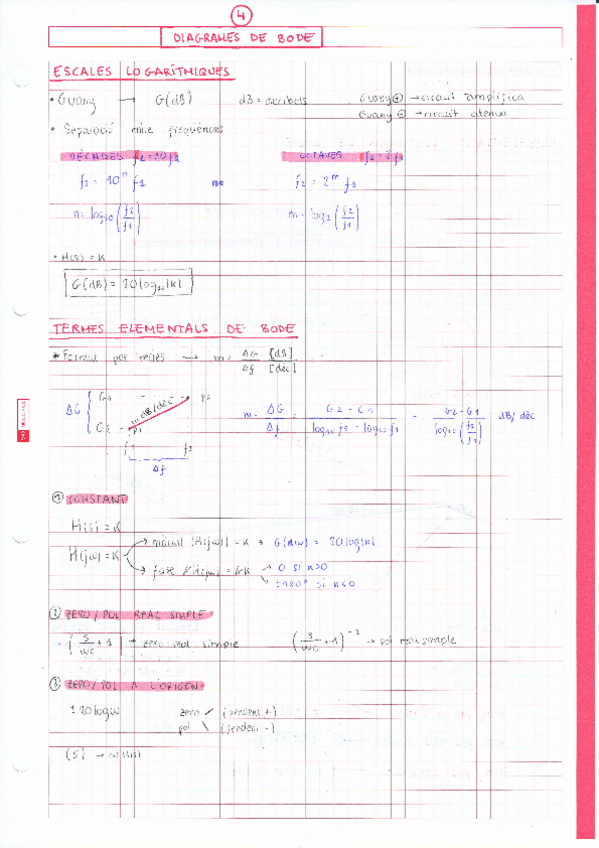 4
DIAGRAMES DE BODE
ESCALES LOGARÍTMIQUES
• Guany → G(dB) dB = decibels Guany ⊕ → circuit amplifica
Guany ⊖ → circuit atenua
• Separació entre freqüències
DÈCADES f2 = 10 f1 OCTAVES f2 = 2 f1
f2 = 10^n f1 f2 = 2^m f1
n = log10 (f2/f1) m = log2 (f2/f1)
• H(s) = K
G(dB) = 20 log10 |K|
TERMES ELEMENTALS DE BODE
per m → m = ΔG/Δf [dB]/[dec]
ΔG m dB/dèc
m = ΔG/Δf = G2 - G1 / log10 f2 - log10 f1 = G2 - G1 / log10 (f2/f1) dB/dèc
G2 P1
f1 f2
Δf
① CONSTANT
H(s) = K
H(jω) = K → mòdul |H(jω)| = K → = 20 log|K|
→ fase → 0 si K>0
±180º si K<0
② ZERO/POL REAL SIMPLE
(s/ωc + 1) → zero real simple (s/ωc + 1)^-1 → pol real simple
③ ZERO/POL A L'ORIGEN
± 20 log ω zero / (pendent +)
pol \ (pendent -)
(s) →